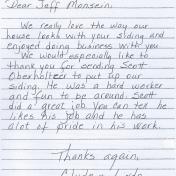 Dear Jeff Monsein,
We really love the way our
house looks with your siding and
enjoyed doing business with you
We would especially like to
thank you for sending Scott
Oberholtzer to put up our
siding. He was a hard worker
and fun to be around. Scott
did a great job. You can tell he
likes his job and he has
alot of pride in his work.
Thanks again,